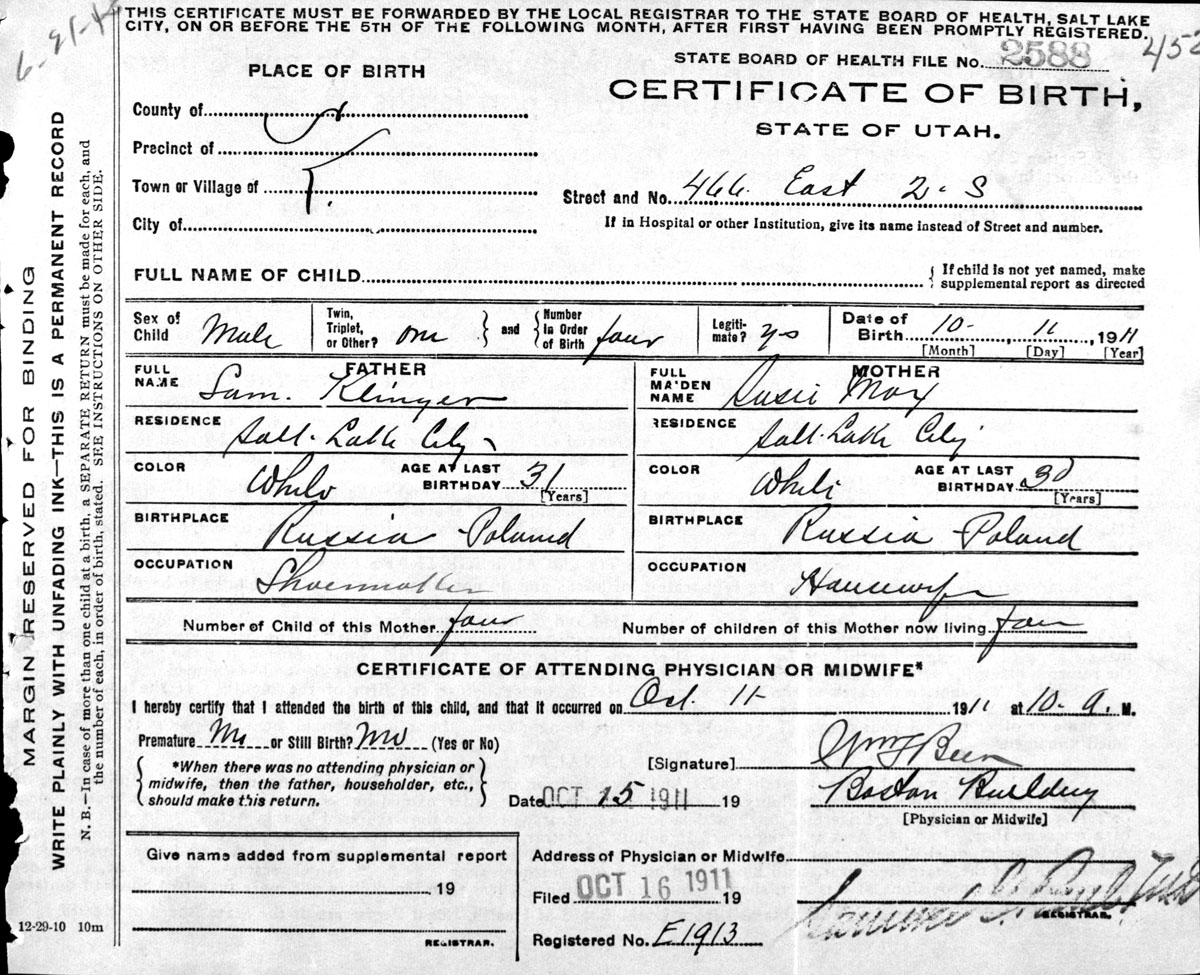 6-21-
THIS CERTIFICATE MUST BE FORWARDED BY THE LOCAL REGISTRAR TO THE STATE BOARD OF HEALTH, SALT LAKE
CITY, ON OR BEFORE THE 5TH OF THE FOLLOWING MONTH, AFTER FIRST HAVING BEEN PROMPTLY REGISTERED.
STATE BOARD OF HEALTH FILE No. 2588
452
CERTIFICATE OF BIRTH,
STATE OF UTAH.
PLACE OF BIRTH
County of
Precinct of
Town or Village of
City of
Street and No. 466. East 2-S
If in Hospital or other Institution, give its name instead of Street and number.
FULL NAME OF CHILD
{ If child is not yet named, make
supplemental report as directed
Sex of
Child Male
Twin,
Triplet,
or Other? one } and { Number
In Order
of Birth four
Legiti-
mate? yes
Date of
Birth 10- 11 1911
[Month] [Day] [Year]
FATHER
FULL
NAME Sam. Klinger
RESIDENCE
Salt-Lake City
COLOR White
AGE AT LAST
BIRTHDAY 31
[Years]
BIRTHPLACE
Russia Poland
OCCUPATION
Shoemaker
MOTHER
FULL
MAIDEN
NAME Susie Mox
RESIDENCE
Salt-Lake City
COLOR White
AGE AT LAST
BIRTHDAY 30
[Years]
BIRTHPLACE
Russia Poland
OCCUPATION
Housewife
Number of Child of this Mother four
Number of children of this Mother now living four
CERTIFICATE OF ATTENDING PHYSICIAN OR MIDWIFE*
I hereby certify that I attended the birth of this child, and that it occurred on Oct. 11- 1911 at 10- a. M.
Premature No or Still Birth? No (Yes or No)
{ *When there was no attending physician or
midwife, then the father, householder, etc.,
should make this return. }
[Signature] Wm F Beer
Date OCT 15 1911 19
Boston Building
[Physician or Midwife]
Give name added from supplemental report
19
REGISTRAR.
Address of Physician or Midwife
Filed OCT 16 1911 19
REGISTRAR.
Registered No. E1913
12-29-10 10m
MARGIN RESERVED FOR BINDING
WRITE PLAINLY WITH UNFADING INK—THIS IS A PERMANENT RECORD
N. B.—In case of more than one child at a birth, a SEPARATE RETURN must be made for each, and
the number of each, in order of birth, stated. SEE INSTRUCTIONS ON OTHER SIDE.